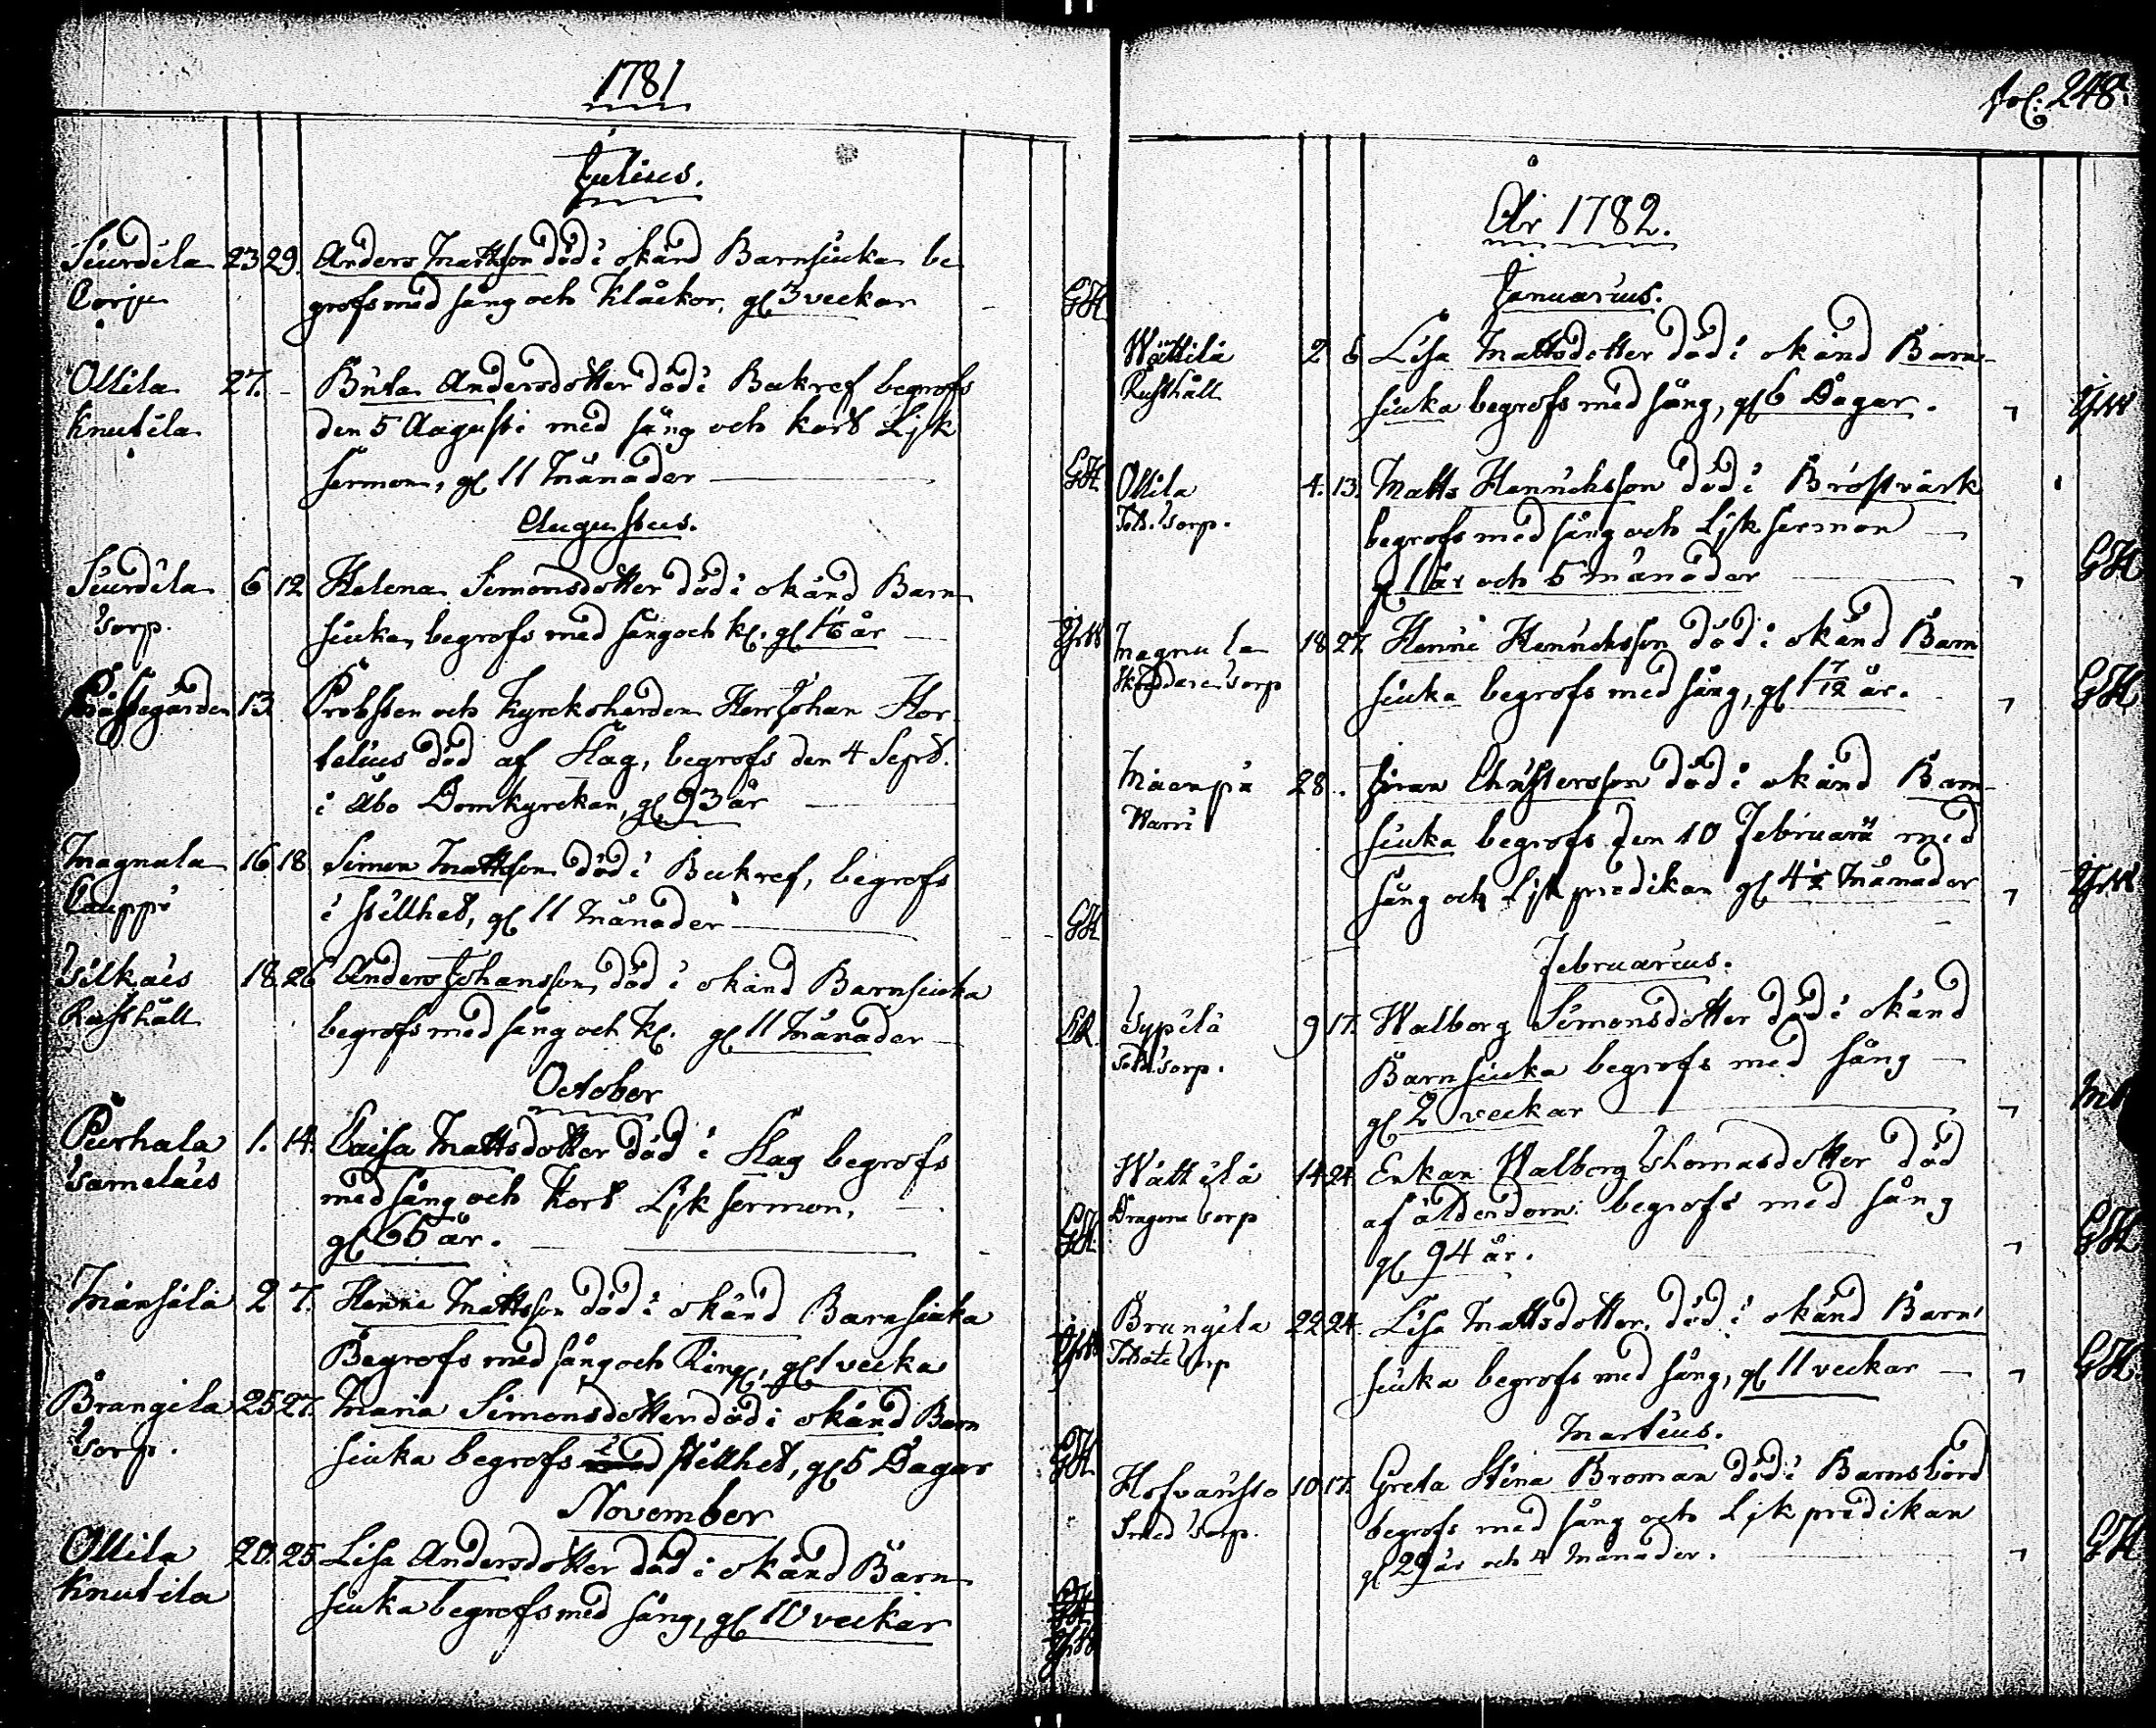 1781
Julius.
Siurdila 23 29. Anders Mattsson död i okänd Barnsiuka be
Eerju grofs med sång och Klåckor, gl 3 veckar GH
Ollila 27. - Brita Andersdotter död i Bukref begrofs
Knutila den 5 Augusti med sång och kort Ljk
sermon, gl 11 Månader GH
Augustus.
Siurdila 6 12 Helena Simonsdotter död i okänd Barn
torp. siuka, begrofs med sång och kl. gl 1 1/6 år
Prästegården 13. Probsten och Kyrckoherden Herr Johan Hor-
telius död af Slag, begrofs den 4 Sept.
i Åbo Domkyrckan, gl 93 år
Magnula 16 18 Simon Mattsson död i Bukref, begrofs
Cauppi i stillhet, gl 11 Månader GH
Tilkais 18. 26 Anders Johansson, död i okänd Barnsiuka
Rusthåll begrofs med sång och kl. gl 11 Månader
October
Piurhala 1. 14. Caisa Mattsdotter död i Slag begrofs
Tamelais med sång och kort Ljk sermon,
gl 65 år. GH
Mänsälä 2 7. Henric Mattsson död i okänd Barnsiuka
Begrofs med sång och Ring., gl 1 vecka
Brangila 25 27. Maria Simonsdotter död i okänd Barn
torp. siuka begrofs i stillhet, gl 5 Dagar GH
November
Ollila 20. 25. Lisa Andersdotter död i okänd Barn
Knutila siuka begrofs med sång, gl 10 veckar
fol. 248.
År 1782.
Januarius.
Wättilä 2 6 Lisa Mattsdotter död i okänd Barn-
Rusthåll siuka begrofs med sång, gl 6 Dagar.
Ollila 4. 13. Matts Henrichsson död i Bröstvärk
torp. begrofs med sång och Ljk sermon
gl 1 år och 5 månader GH
Magnula 18 27. Henric Henrichsson död i okänd Barn
Skräddare torp siuka begrofs med sång, gl 1 7/12 år. GH
Mäenpä 28. Jöran Christersson död i okänd Barn-
Warri siuka begrofs den 10 Februarii med
sång och Ljk predikan gl 4 1/2 Månader
Februarius.
Typila 9 17. Walborg Simonsdotter död i okänd
Sold. torp. Barnsiuka begrofs med sång
gl 2 veckar
Wättilä 14 24. Enkan Walborg Thomasdotter död
Dragone torp af ålderdom begrofs med sång
gl 94 år. GH
Brangila 22 24. Lisa Mattsdotter, död i okänd Barn
torp siuka begrofs med sång, gl 11 veckar GH
Martius.
Hofvansto 10 17. Greta Stina Broman död i Barnsbörd
Smed torp. begrofs med sång och Ljk predikan
gl 29 år och 4 Månader. GH